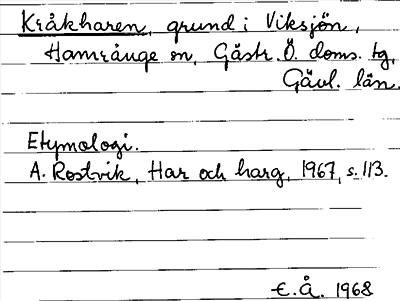 Kråkharen, grund i Viksjön,
Hamrånge sn, Gästr. Ö. doms. tg,
Gävl. län.
Etymologi.
A. Rostvik, Har och harg, 1967, s. 113.
E.Å. 1968